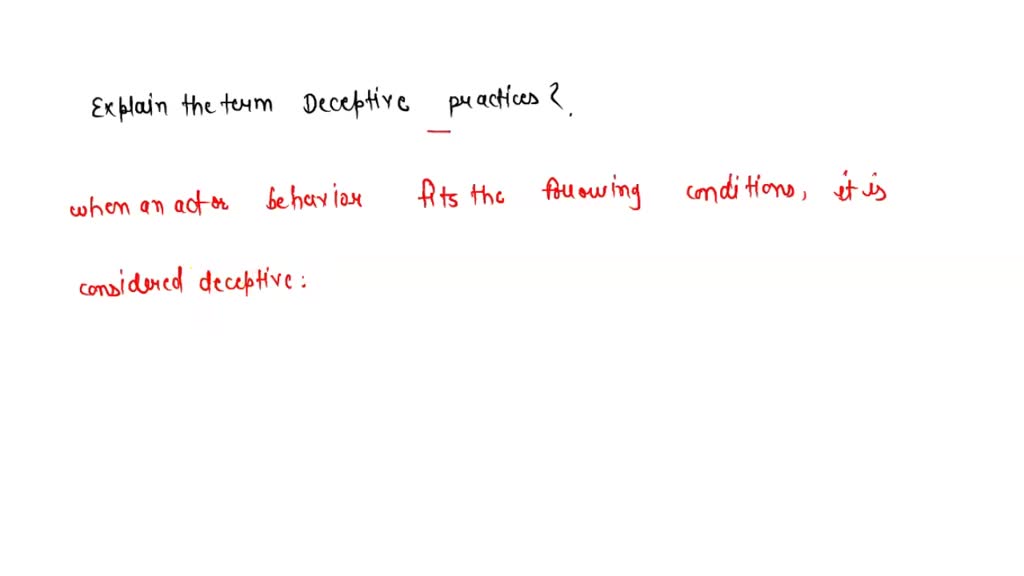 Explain the term Deceptive practices?.
when an act or behavior fits the following conditions, it is
considered deceptive: